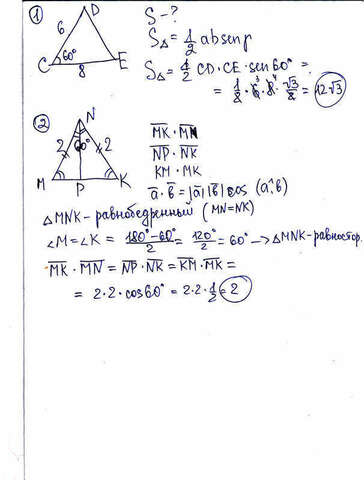 1
D
6
60°
C
8
E
S - ?
S△ = 1/2 ab sen β
S△ = 1/2 CD · CE · sen 60° =
= 1/2 · 6 · 8 · √3/2 = 12√3
2
N
2
60°
2
M
P
K
MK · MN
NP · NK
KM · MK
a · b = |a| |b| cos (a^b)
△MNK - равнобедренный (MN=NK)
∠M = ∠K = 180° - 60° / 2 = 120° / 2 = 60° → △MNK - равностор.
MK · MN = NP · NK = KM · MK =
= 2 · 2 · cos 60° = 2 · 2 · 1/2 = 2